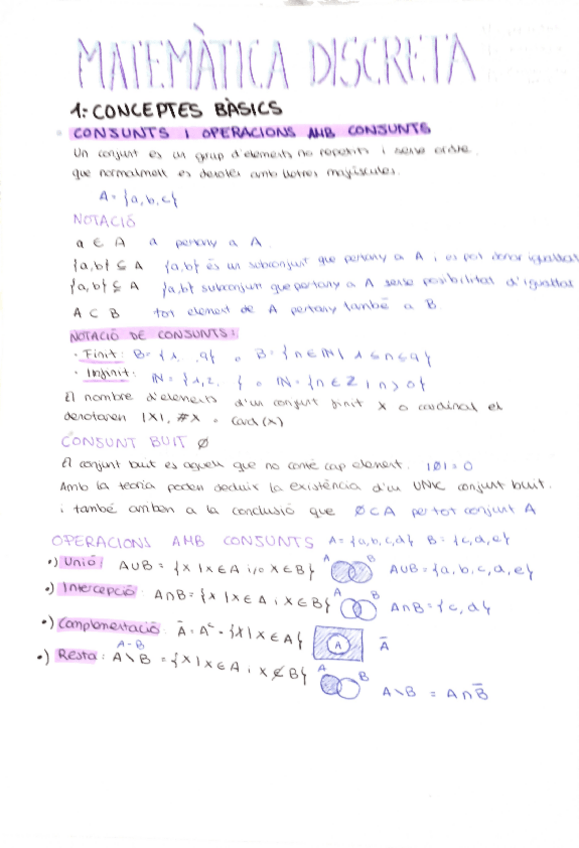 MATEMÀTICA DISCRETA
1: CONCEPTES BÀSICS
CONJUNTS I OPERACIONS AMB CONJUNTS
Un conjunt es un grup d'elements no repetits i sense ordre.
que normalment es denoten amb lletres majúscules.
A = {a,b,c}
NOTACIÓ
a ∈ A a pertany a A.
{a,b} ⊆ A {a,b} és un subconjunt que pertany a A i es pot donar igualtat
{a,b} ⊊ A {a,b} subconjunt que pertany a A sense posibilitat d'igualtat
A ⊂ B tot element de A pertany també a B.
NOTACIÓ DE CONJUNTS:
· Finit: B = {1, ,9} o B = {n ∈ ℕ | 1 ≤ n ≤ 9}
· Infinit: ℕ = {1,2, } o ℕ = {n ∈ ℤ | n > 0}
El nombre d'elements d'un conjunt finit X o cardinal es
denotaren |X|, #X o Card(X)
CONJUNT BUIT Ø
El conjunt buit es aquell que no conté cap element. |Ø| = 0
Amb la teoria poden deduir la existència d'un UNIC conjunt buit.
i també arriben a la conclusió que Ø ⊂ A per tot conjunt A
OPERACIONS AMB CONJUNTS A = {a,b,c,d} B = {c,d,e}
•) Unió: A∪B = {x | x ∈ A i/o x ∈ B} A B A∪B = {a,b,c,d,e}
•) Intercepció: A∩B = {x | x ∈ A i x ∈ B} A B A∩B = {c,d}
•) Complementació: Ā = Aᶜ = {x | x ∉ A} A Ā
A-B
•) Resta: A\B = {x | x ∈ A i x ∉ B} A B A\B = A∩B̄